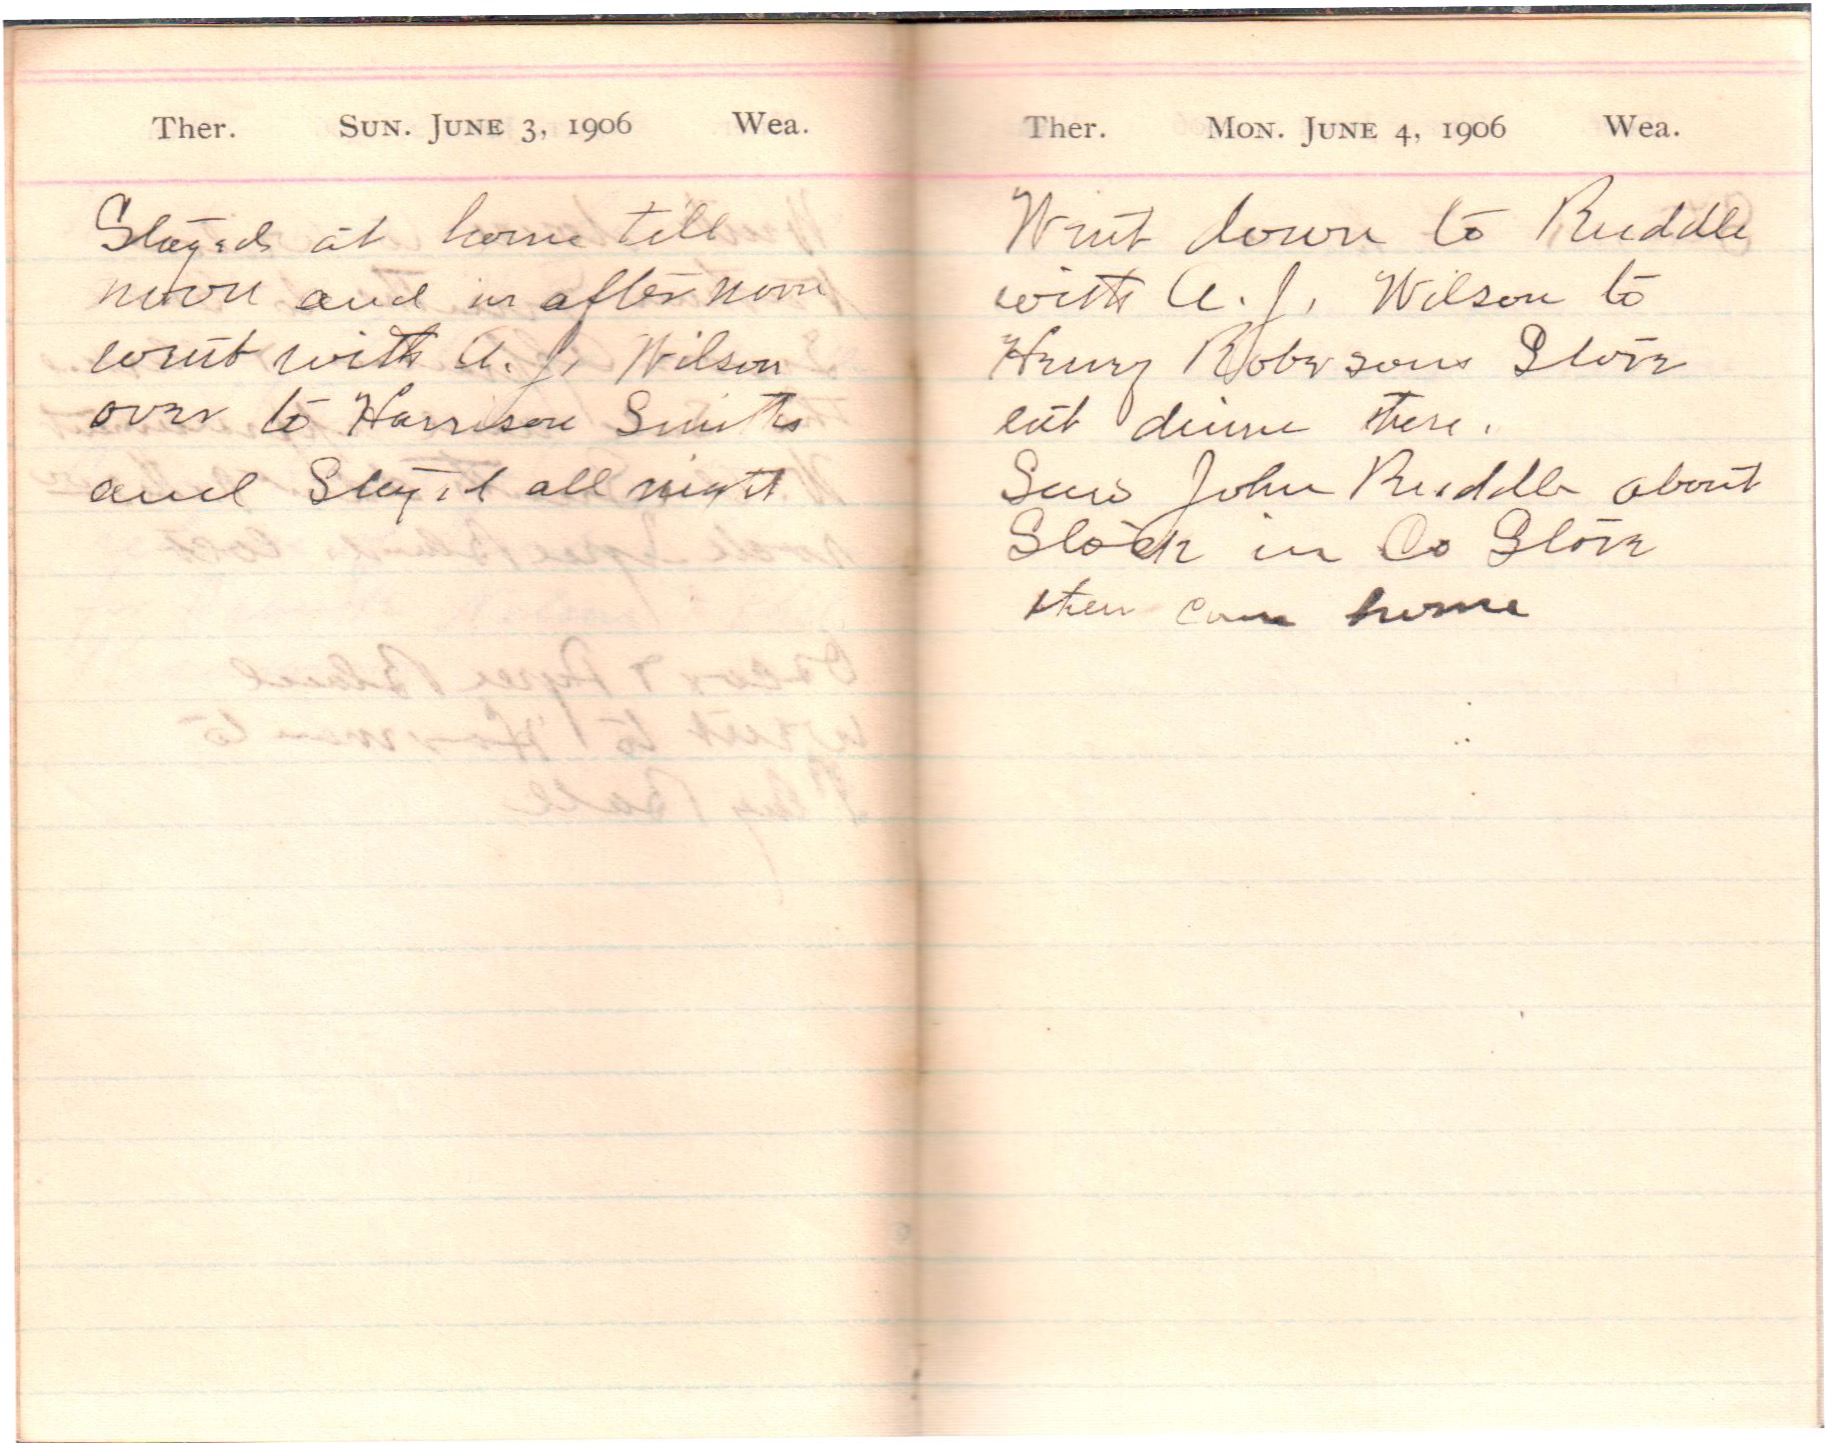 Ther. SUN. JUNE 3, 1906 Wea.
Stayed at home till
noon and in afternoon
went with A. J. Wilson
over to Harrison Smiths
and Stayed all night
Ther. MON. JUNE 4, 1906 Wea.
Went down to Ruddle
with A. J. Wilson to
Henry Robersons Store
eat dinne there.
Saw John Ruddle about
Stock in Co Store
then came home